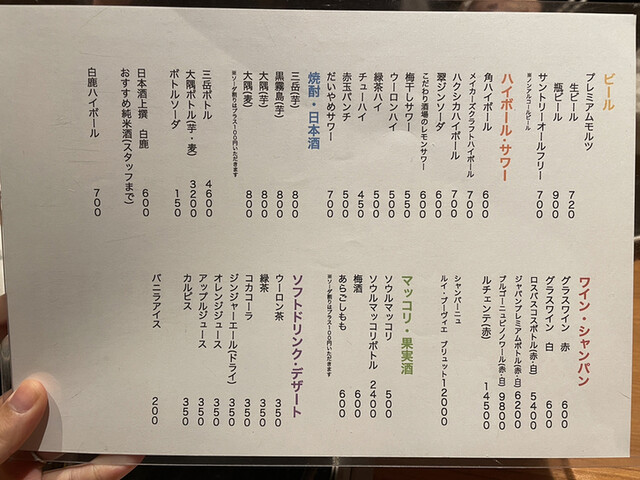 ビール
プレミアムモルツ
生ビール 720
瓶ビール 900
サントリーオールフリー 700
※ノンアルコールビール
ハイボール・サワー
角ハイボール 600
メイカーズクラフトハイボール 700
ハクシカハイボール 700
翠ジンソーダ 600
こだわり酒場のレモンサワー 600
梅干しサワー 550
ウーロンハイ 500
緑茶ハイ 500
チューハイ 450
赤玉パンチ 500
だいやめサワー 700
焼酎・日本酒
三岳(芋) 800
黒霧島(芋) 800
大隅(芋) 800
大隅(麦) 800
※ソーダ割りはプラス100円いただきます
三岳ボトル 4600
大隅ボトル(芋・麦) 3200
ボトルソーダ 150
日本酒上撰 白鹿 600
おすすめ純米酒(スタッフまで)
白鹿ハイボール 700
ワイン・シャンパン
グラスワイン 赤 600
グラスワイン 白 600
ロスパスコスボトル(赤・白) 5400
ジャパンプレミアムボトル(赤・白) 6200
ブルゴーニュピノノワール(赤・白) 9800
ルチェンテ(赤) 14500
シャンパーニュ
ルイ・ブーヴィエ ブリュット 12000
マッコリ・果実酒
ソウルマッコリ 500
ソウルマッコリボトル 2400
梅酒 600
あらごしもも 600
※ソーダ割りはプラス100円いただきます
ソフトドリンク・デザート
ウーロン茶 350
緑茶 350
コカコーラ 350
ジンジャーエール(ドライ) 350
オレンジジュース 350
アップルジュース 350
カルピス 350
バニラアイス 200